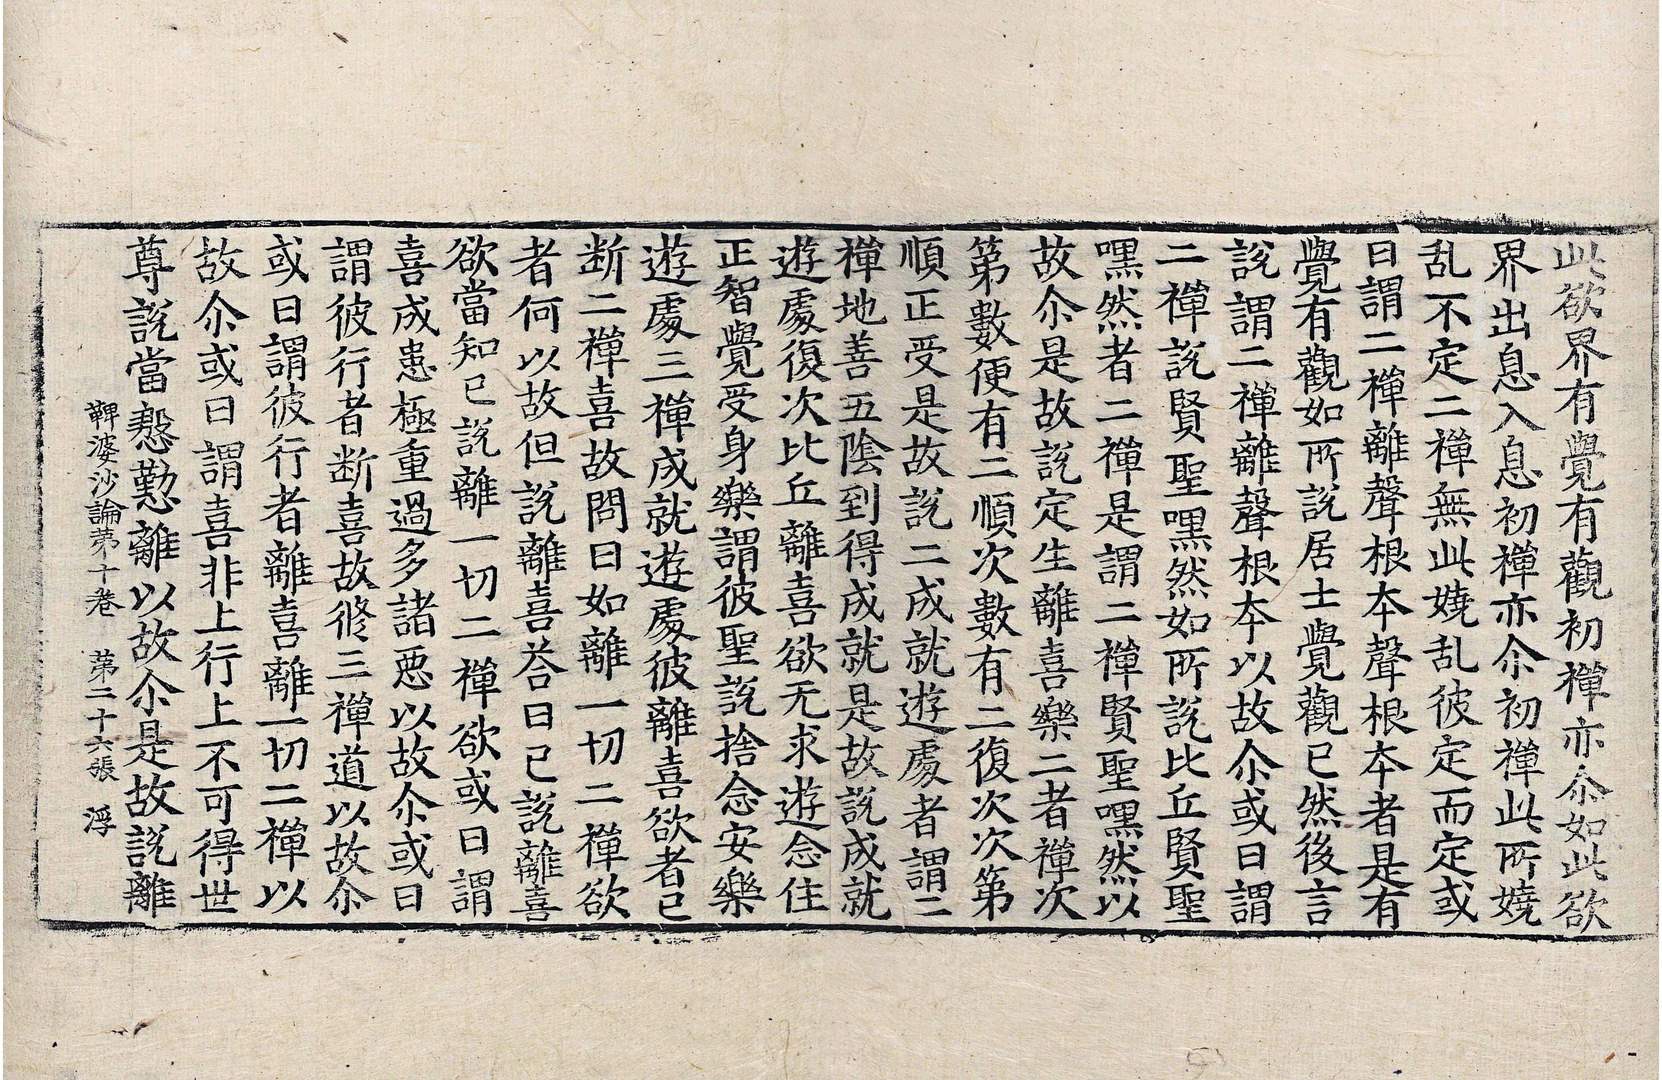 此欲界有覺有觀初禪亦尒如此欲
界出息入息初禪亦尒初禪此所嬈
乱不定二禪無此嬈乱彼定而定或
曰謂二禪離聲根本聲根本者是有
覺有觀如所說居士覺觀已然後言
說謂二禪離聲根本以故尒或曰謂
二禪說賢聖嘿然如所說比丘賢聖
嘿然者二禪是謂二禪賢聖嘿然以
故尒是故說定生離喜樂二者禪次
第數便有二順次數有二復次次第
順正受是故說二成就遊處者謂二
禪地善五陰到得成就是故說成就
遊處復次比丘離喜欲无求遊念住
正智覺受身樂謂彼聖說捨念安樂
遊處三禪成就遊處彼離喜欲者已
断二禪喜故問曰如離一切二禪欲
者何以故但說離喜荅曰已說離喜
欲當知已說離一切二禪欲或曰謂
喜成患極重過多諸惡以故尒或曰
謂彼行者断喜故修三禪道以故尒
或曰謂彼行者離喜離一切二禪以
故尒或曰謂喜非上行上不可得世
尊說當慇懃離以故尒是故說離
鞞婆沙論第十卷 第二十六張 浮